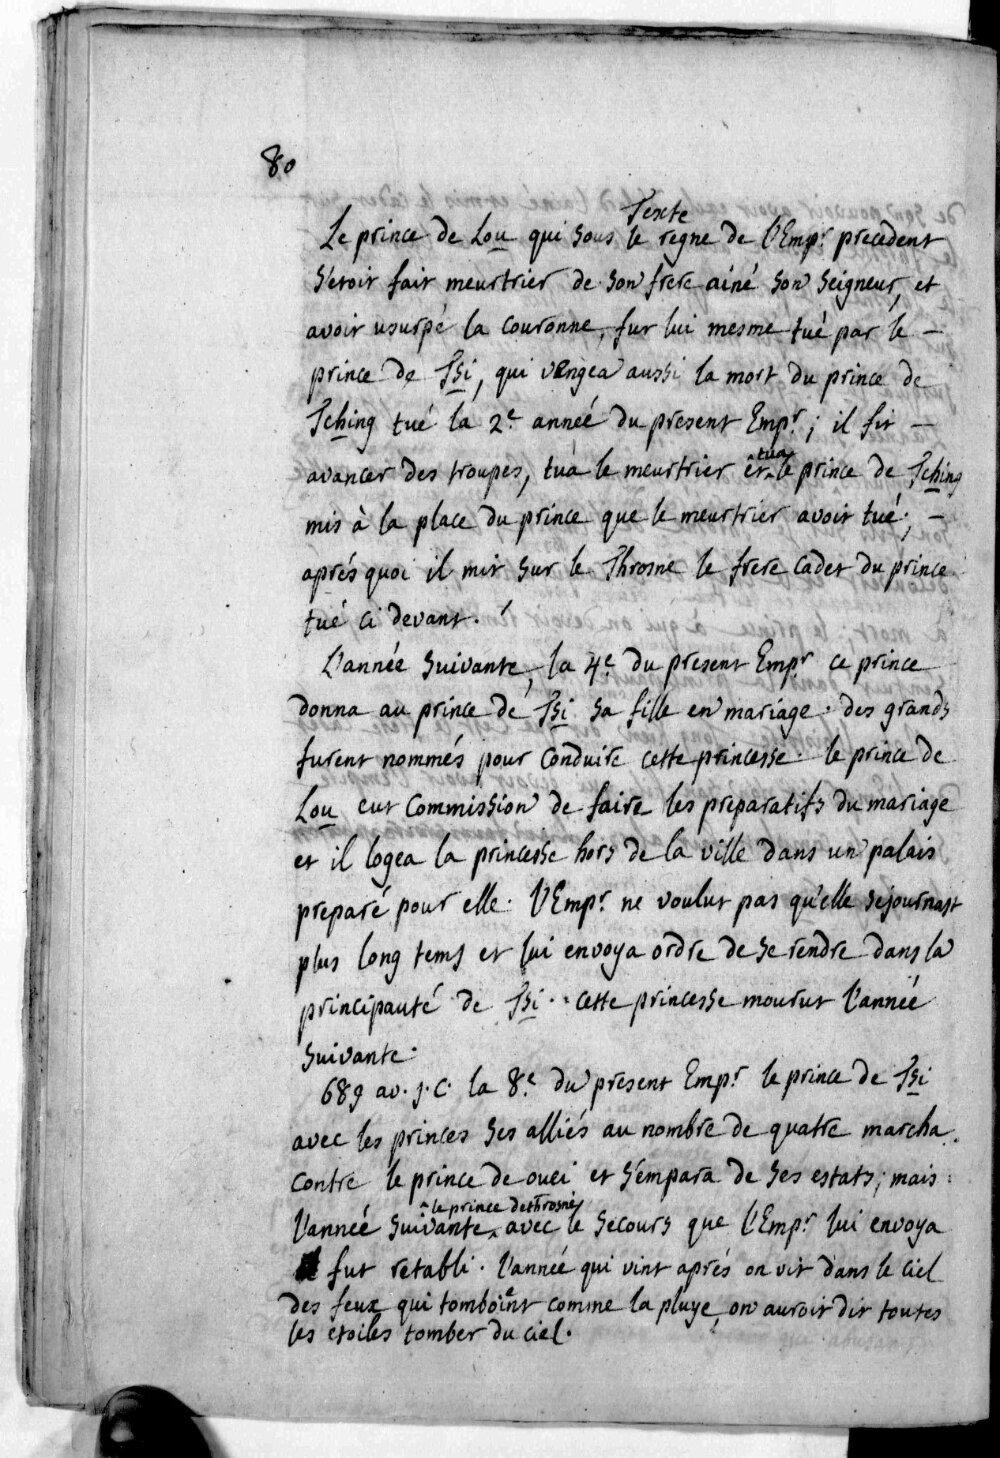 80
Texte
Le prince de Lou qui sous le regne de l'Empr. precedent
s'etoit fait meurtrier de son frere ainé son seigneur, et
avoit usurpé la couronne, fut lui mesme tué par le –
prince de Tsi, qui vengea aussi la mort du prince de
Tching tué la 2e. année du present Empr.; il fit –
avancer des troupes, tua le meurtrier et tua le prince de Tching
mis à la place du prince que le meurtrier avoit tué; –
aprés quoi il mit sur le Throsne le frere cadet du prince
tué ci devant.
L'année suivante, la 4e. du present Empr. ce prince
donna au prince de Tsi sa fille en mariage. des grands
furent nommés pour conduire cette princesse. le prince de
Lou eut commission de faire les preparatifs du mariage
et il logea la princesse hors de la ville dans un palais
preparé pour elle. l'Empr. ne voulut pas qu'elle sejournast
plus long tems et lui envoya ordre de se rendre dans la
principauté de Tsi. cette princesse mourut l'année
suivante.
689 av. j. C. la 8e. du present Empr. le prince de Tsi
avec les princes ses alliés au nombre de quatre marcha
contre le prince de ouei et s'empara de ses estats; mais
l'année suivante le prince dethrosné avec le secours que l'Empr. lui envoya
fut retabli. l'année qui vint aprés on vit dans le ciel
des feux qui tomboient comme la pluye, on auroit dit toutes
les etoiles tomber du ciel.